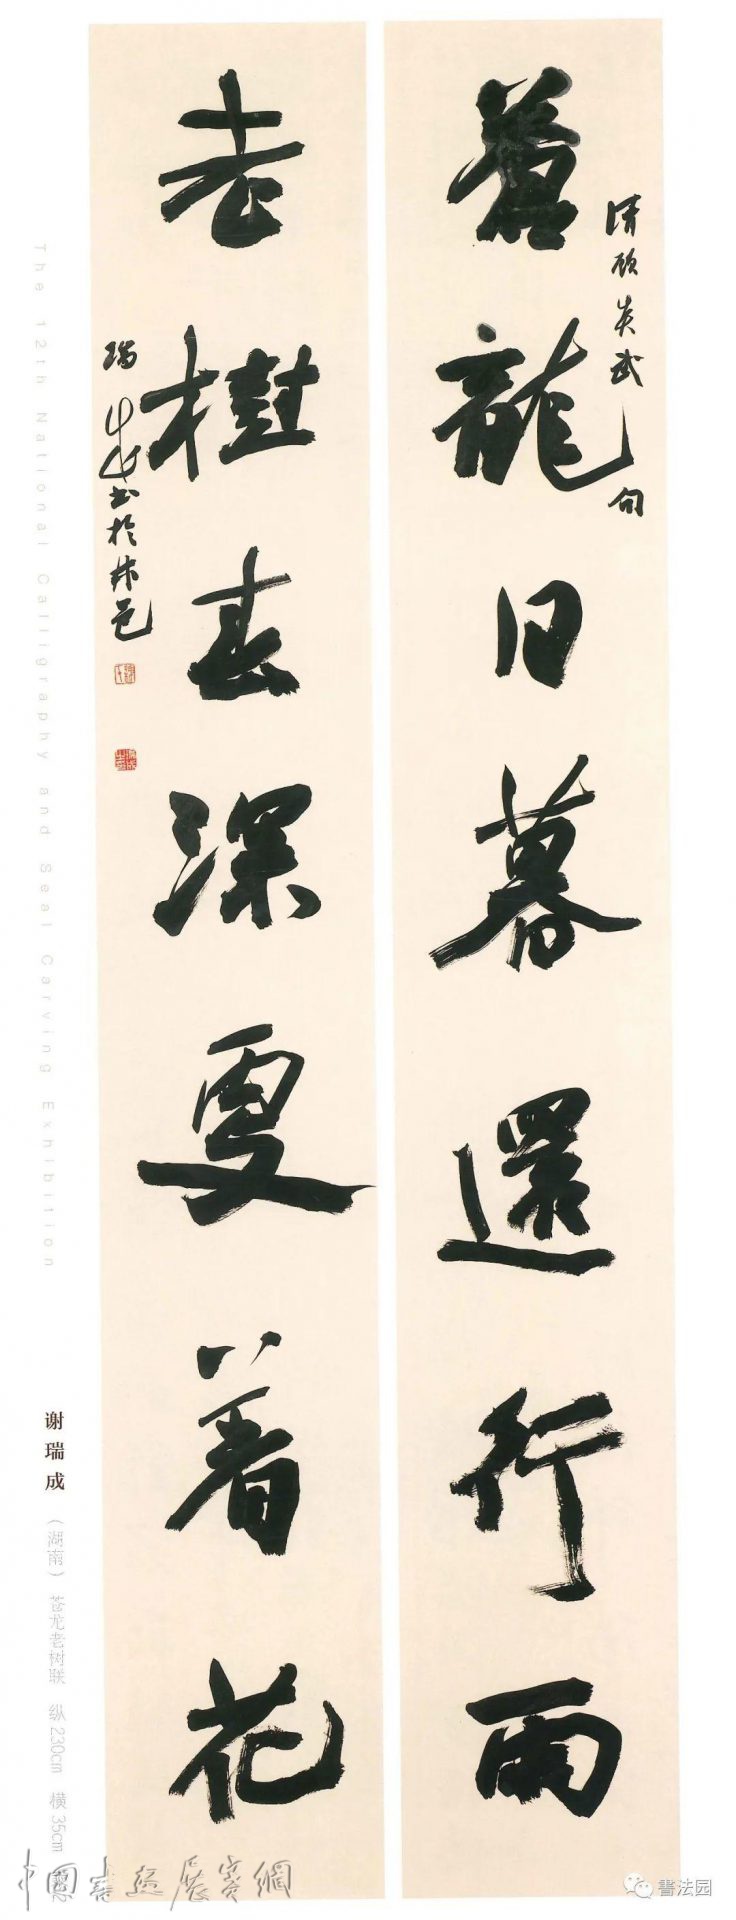 蒼龍日暮還行雨
清顧炎武句
老樹春深更著花
瑞成書於
The 12th National Calligraphy and Seal Carving Exhibition
谢瑞成
（湖南） 苍龙老树联 纵230cm 横35cm
中國書畫展賽網
書法园